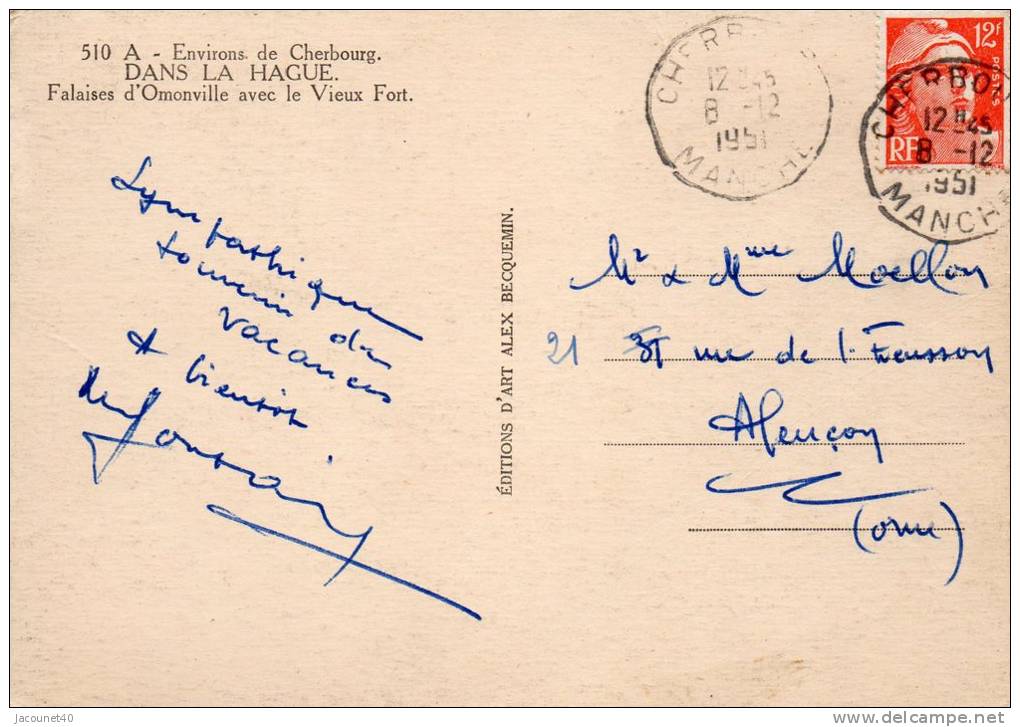 510 A - Environs de Cherbourg.
DANS LA HAGUE.
Falaises d'Omonville avec le Vieux Fort.
12f
POSTES
RF
CHERBO
12 H 45
8 -12
1951
MANCHE
CHERBO
12 H 45
8 -12
1951
MANCHE
Sympathique
souvenir de
vacances
A bientôt
ÉDITIONS D'ART ALEX BECQUEMIN.
Mr & Mme Moellon
21 rue de l'Ecusson
Alençon
(Orne)
Jacounet40
www.delcampe.net